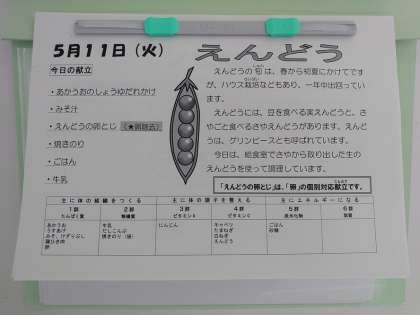 5月11日（火）
えんどう
今日の献立
・あかうおのしょうゆだれかけ
・みそ汁
・えんどうの卵とじ
・焼きのり
・ごはん
・牛乳
えんどうの旬は、春から初夏にかけてです
が、ハウス栽培などもあり、一年中出回ってい
ます。
えんどうには、豆を食べる実えんどうと、さ
やごと食べるさやえんどうがあります。えんど
うは、グリンピースとも呼ばれています。
今日は、給食室でさやから取り出した生の
えんどうを使って調理しています。
「えんどうの卵とじ」は、「卵」の個別対応献立です。
主に体の組織をつくる
主に体の調子を整える
主にエネルギーになる
1群 2群 3群 4群 5群 6群
たんぱく質 無機質 ビタミンA ビタミンC 炭水化物 脂質
あかうお 牛乳 にんじん キャベツ ごはん
うすあげ だしこんぶ たまねぎ 砂糖
みそ、けずりぶし 焼きのり 白ねぎ
鶏ひき肉 えんどう
卵